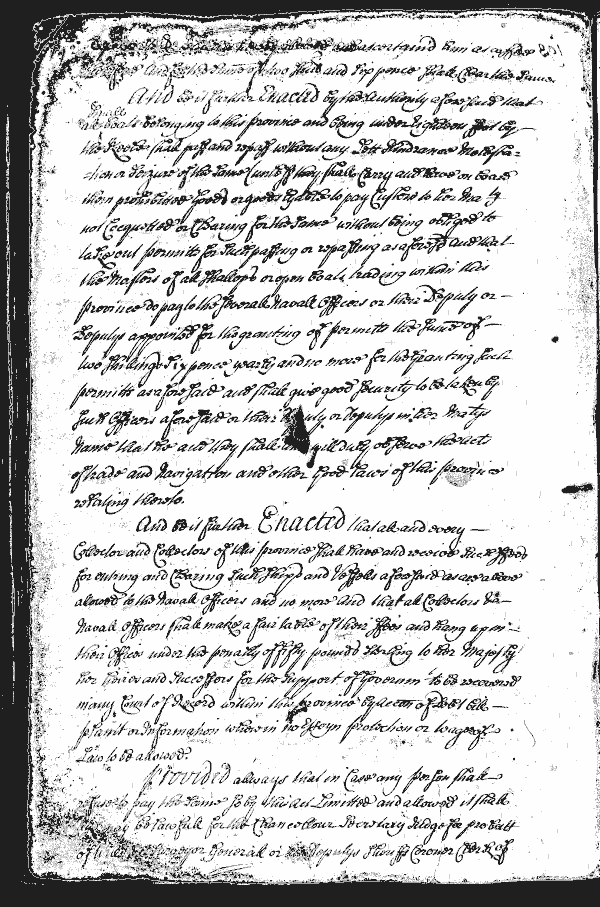 and ascertained him as
and six pence shall
And be it further Enacted by the Authority aforesaid that
all boats belonging to this province and being under Eighteen foot by
the Keele shall pass and repass without any Lett Hindrance Molesta-
tion or Seizure of the same (untill they shall Carry and have on board
them prohibited Goods or goods lyable to pay Customs to her Maty
not Cocquetted or Clearing for the same without being obliged to
take out permitts for such passing or repassing as aforesd and that
the Masters of all Shallops or open boats trading within this
province do pay to the severall Navall Officers or their Deputy or
Deputys appointed for the granting of permitts the sume of
two shillings Six pence yearly and no more for the Granting such
permitts as aforesaid and shall give good Security to be taken by
such Officers aforesaid or their or Deputys in her Matys
Name that he and they shall will duly observe the Acts
of trade and Navigation and other Good Laws of this province
relating thereto.
And be it further Enacted that all and every
Collector and Collectors of this province shall have and receive such ffees
for entring and Clearing such ships and Vessells aforesaid as are above
allowed to the Navall Officers and no more And that all Collectors &
Navall Officers shall make a fair table of their ffees and hang up in
their Offices under the penalty of fifty pounds Sterling to her Majesty
her Heires and Successors for the Support of Governmt to be recovered
in any Court of Record within this province by accon of debt bill
plaint or Information wherein no Essoyn protection or wager of
Law to be allowed.
Provided always that in Case any person shall
refuse to pay the same so by this Act Limitted and allowed it shall
may be lawfull for the Chancellour Secretary Judge for probatt
of Surveyor Generall or Deputys Sheriff Coroner Clerk of